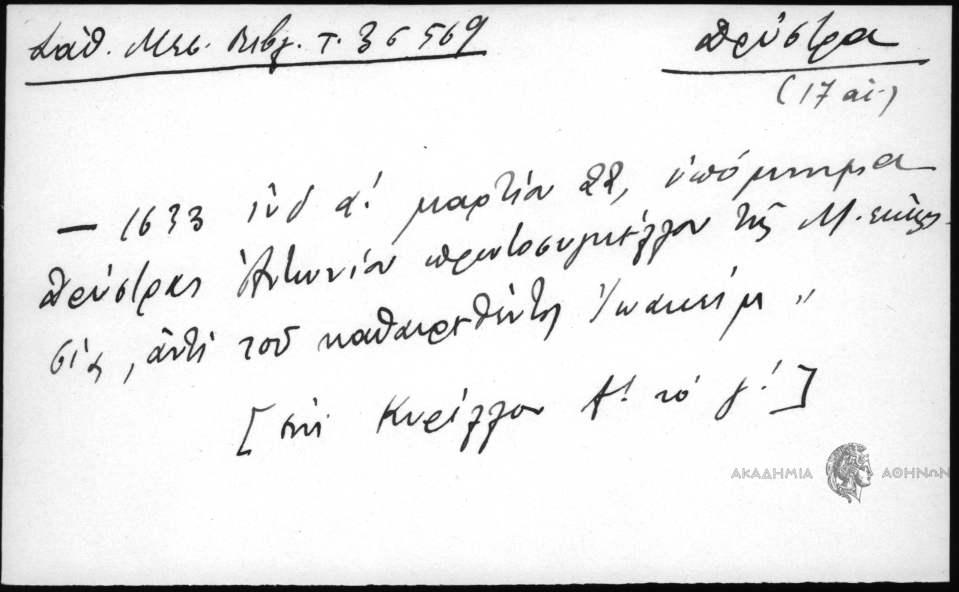 Σάθ. Μεσ. Βιβλ. τ. 3 σ 569
Δρύστρα
(17 αἰ.)
— 1633 ἰνδ α΄. μαρτίου 22, ὑπόμνημα
Δρύστρας Ἀντωνίου πρωτοσυγκέλλου τῆς Μ. ἐκκλη-
σίας, ἀντὶ τοῦ καθαιρεθέντος Ἰωακείμ "
[ἐπὶ Κυρίλλου Α΄. τὸ γ΄.]
ΑΚΑΔΗΜΙΑ ΑΘΗΝΩΝ